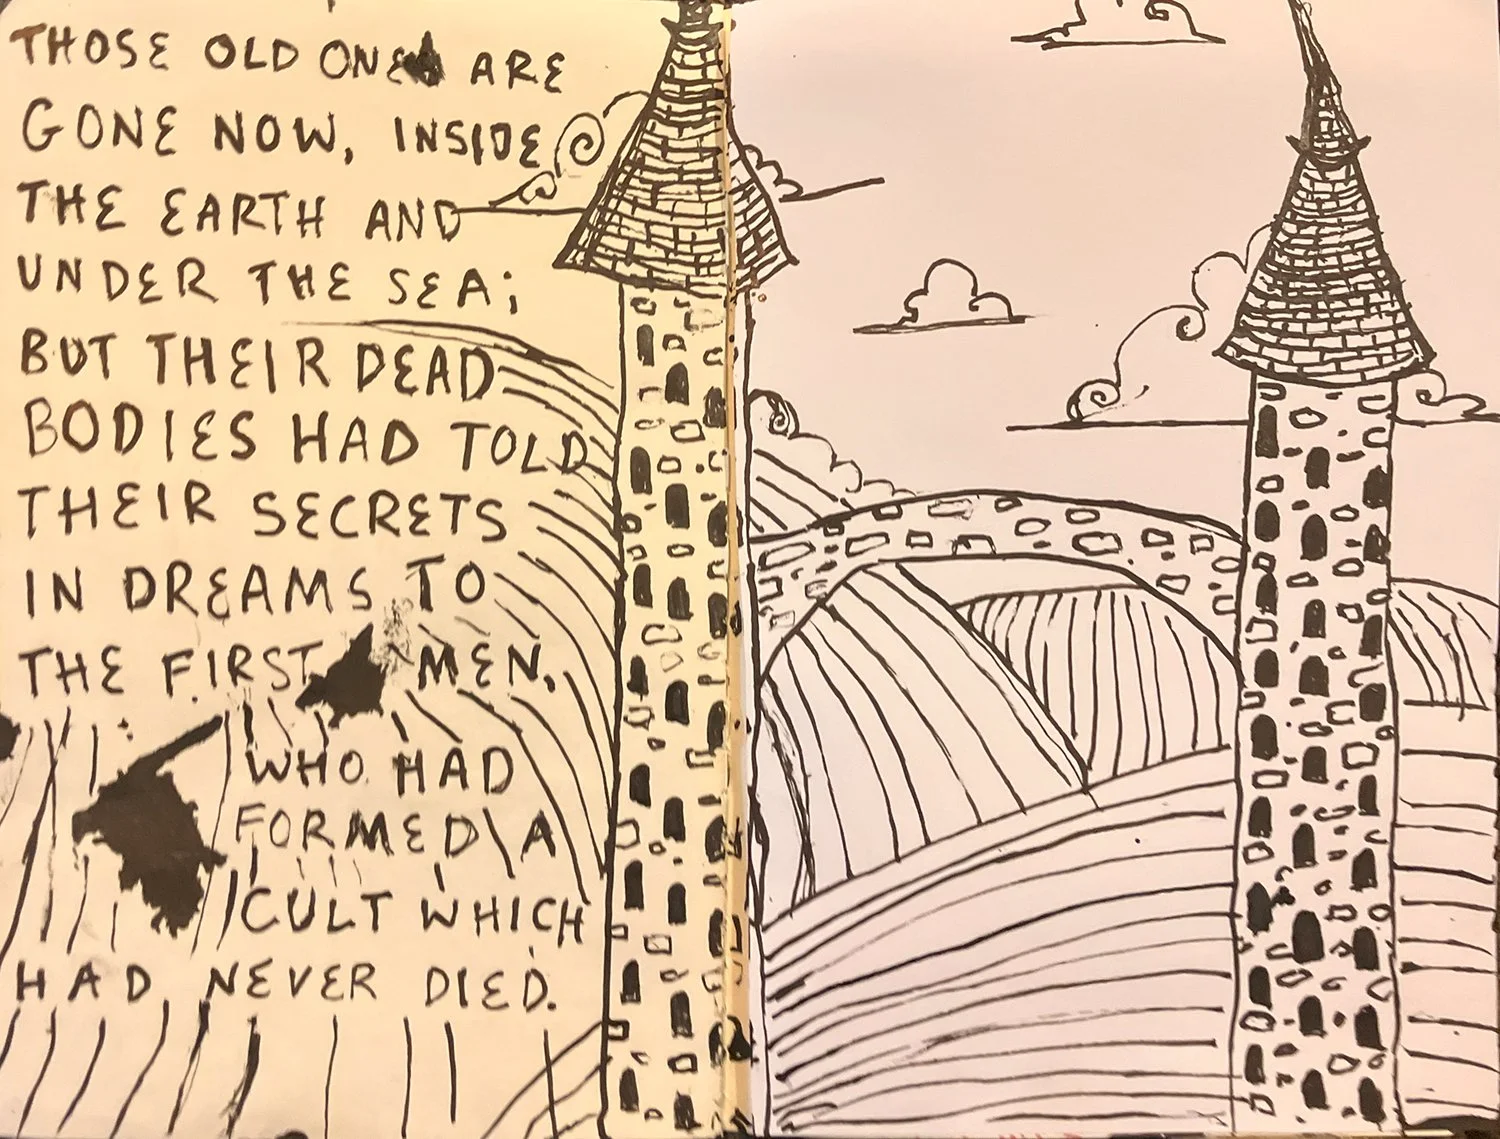 THOSE OLD ONES ARE
GONE NOW, INSIDE
THE EARTH AND
UNDER THE SEA;
BUT THEIR DEAD
BODIES HAD TOLD
THEIR SECRETS
IN DREAMS TO
THE FIRST MEN,
WHO HAD
FORMED A
CULT WHICH
HAD NEVER DIED.